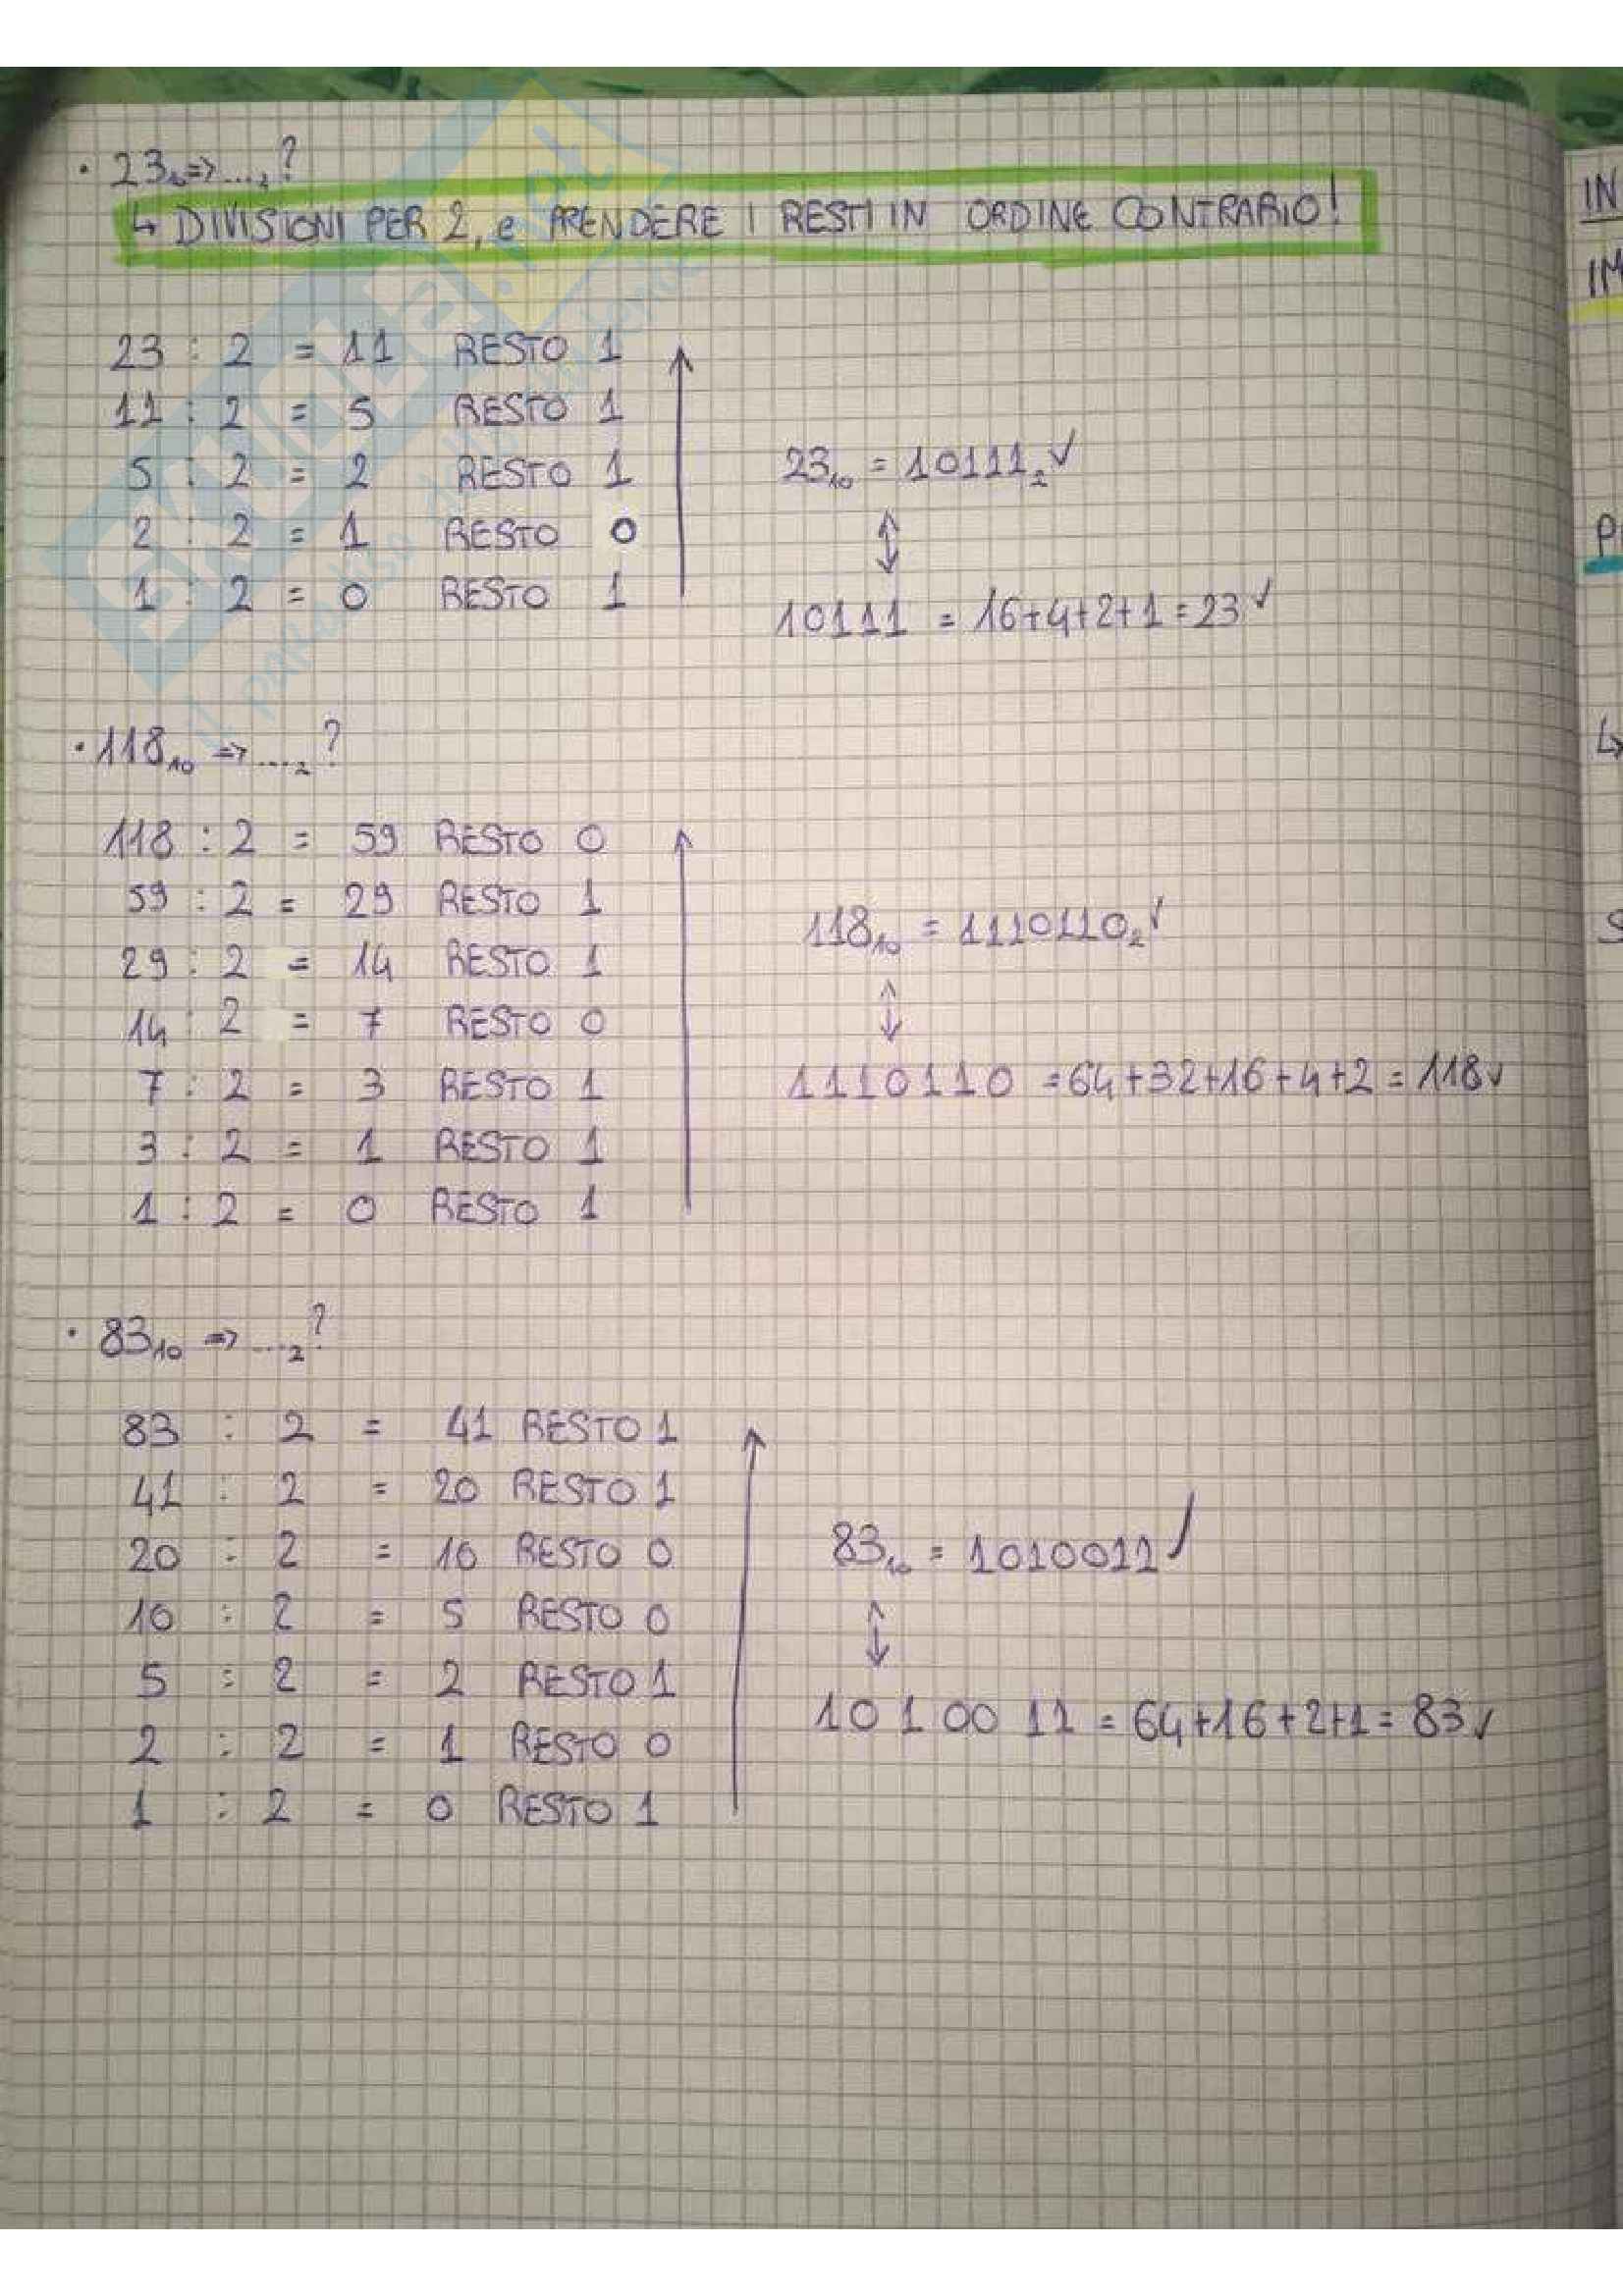 • 23₁₀ => ....₂ ?
↳ DIVISIONI PER 2, e PRENDERE I RESTI IN ORDINE CONTRARIO!
23 : 2 = 11 RESTO 1
11 : 2 = 5 RESTO 1
5 : 2 = 2 RESTO 1
2 : 2 = 1 RESTO 0
1 : 2 = 0 RESTO 1
23₁₀ = 10111₂ ✓
↕
10111 = 16+4+2+1 = 23 ✓
• 118₁₀ => ....₂ ?
118 : 2 = 59 RESTO 0
59 : 2 = 29 RESTO 1
29 : 2 = 14 RESTO 1
14 : 2 = 7 RESTO 0
7 : 2 = 3 RESTO 1
3 : 2 = 1 RESTO 1
1 : 2 = 0 RESTO 1
118₁₀ = 1110110₂ ✓
↕
1110110 = 64+32+16+4+2 = 118 ✓
• 83₁₀ => ....₂ ?
83 : 2 = 41 RESTO 1
41 : 2 = 20 RESTO 1
20 : 2 = 10 RESTO 0
10 : 2 = 5 RESTO 0
5 : 2 = 2 RESTO 1
2 : 2 = 1 RESTO 0
1 : 2 = 0 RESTO 1
83₁₀ = 1010011 ✓
↕
1010011 = 64+16+2+1 = 83 ✓
IN
IM